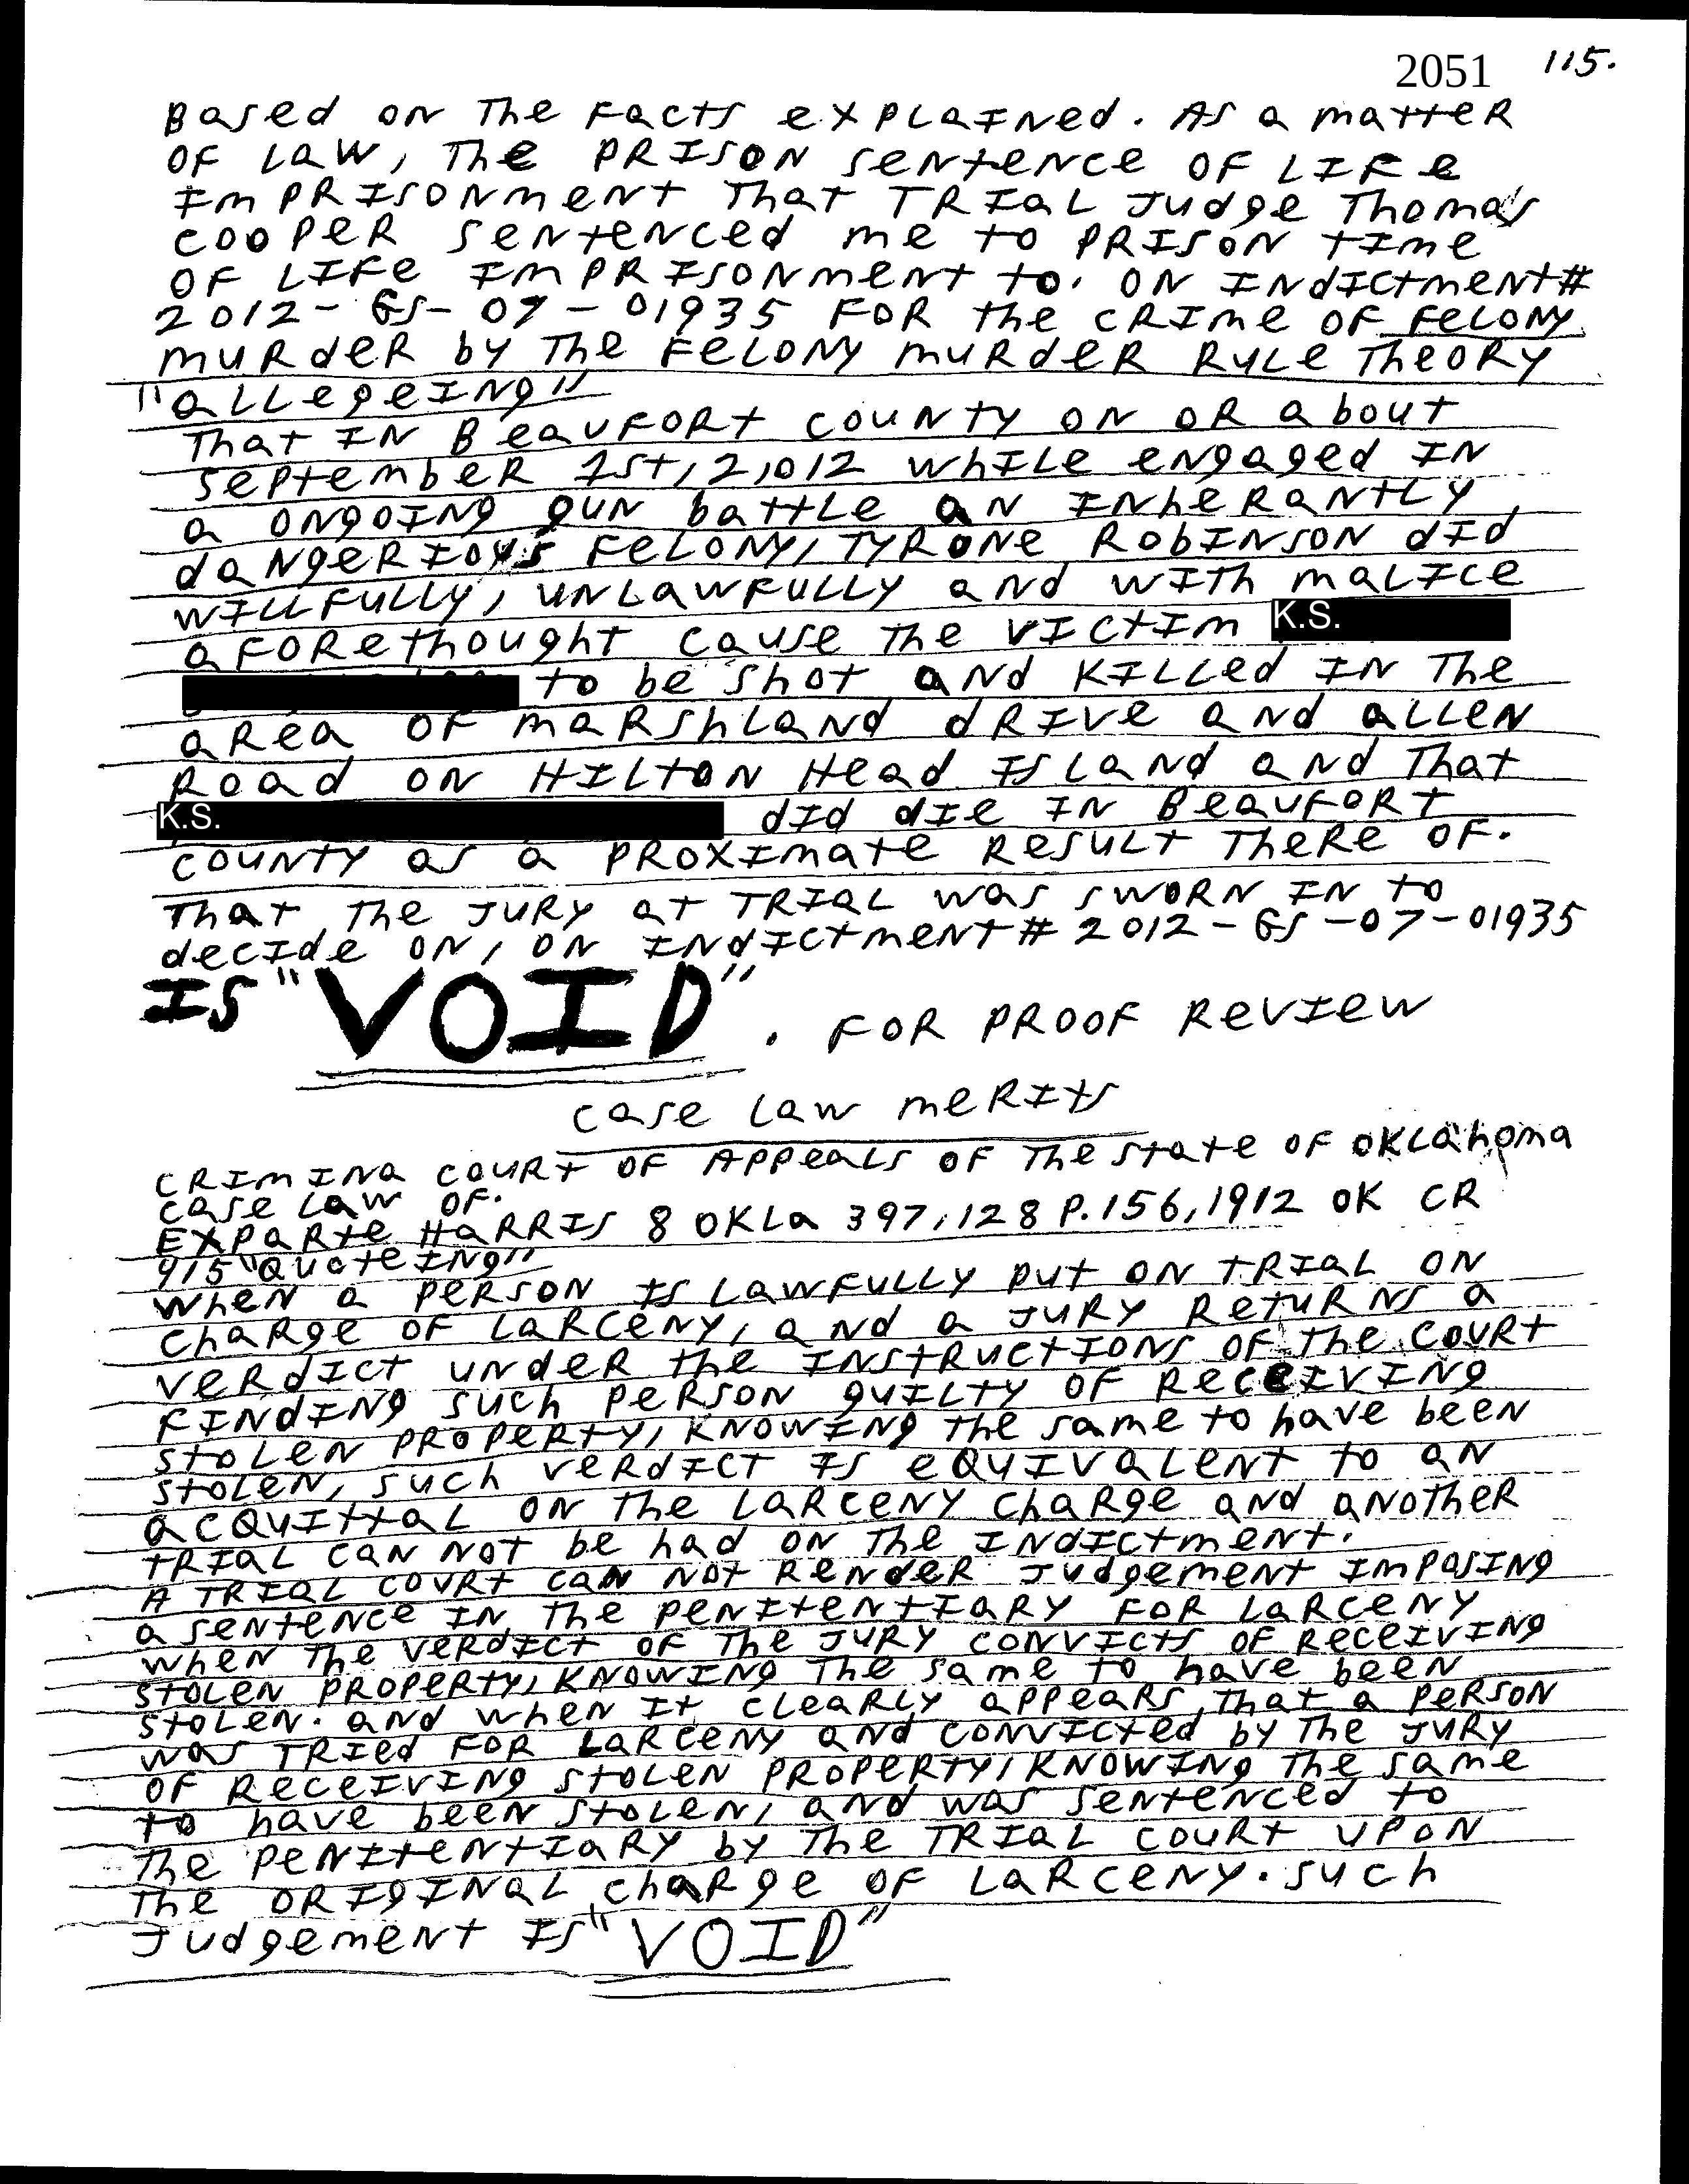 2051 115.
Based on The Facts explained. As a matter
of law, The prison sentence of life
imprisonment That Trial Judge Thomas
Cooper sentenced me to prison time
of life imprisonment to. on indictment#
2012-GS-07-01935 for the crime of felony
murder by The felony murder rule Theory
"allegeing"
That in Beaufort county on or about
September 1st, 2,012 while engaged in
a ongoing gun battle an inherantly
dangerious felony, Tyrone Robinson did
willfully, unlawfully and with malice
aforethought cause The victim K.S.
to be shot and killed in The
area of Marshland Drive and Allen
Road on Hilton Head Island and That
K.S. did die in Beaufort
county as a proximate result There of.
That The jury at Trial was sworn in to
decide on, on indictment# 2012-GS-07-01935
is "VOID". For proof review
case law merits
Crimina court of Appeals of The state of Oklahoma
case law of.
Exparte Harris 8 Okla 397, 128 P. 156, 1912 OK CR
915 "Quoteing"
When a person is lawfully put on trial on
charge of larceny, and a jury returns a
verdict under the instructions of the court
finding such person guilty of receiving
stolen property, knowing the same to have been
stolen, such verdict is equivalent to an
acquittal on the larceny charge and another
trial can not be had on The indictment.
A trial court can not render judgement imposing
a sentence in The penitentiary for larceny
when The verdict of The jury convicts of receiving
stolen property, knowing The same to have been
stolen. and when it clearly appears That a person
was Tried for larceny and convicted by The jury
of receiving stolen property, knowing The same
to have been stolen, and was sentenced to
The penitentiary by The Trial court upon
The original charge of larceny. such
judgement is "VOID"